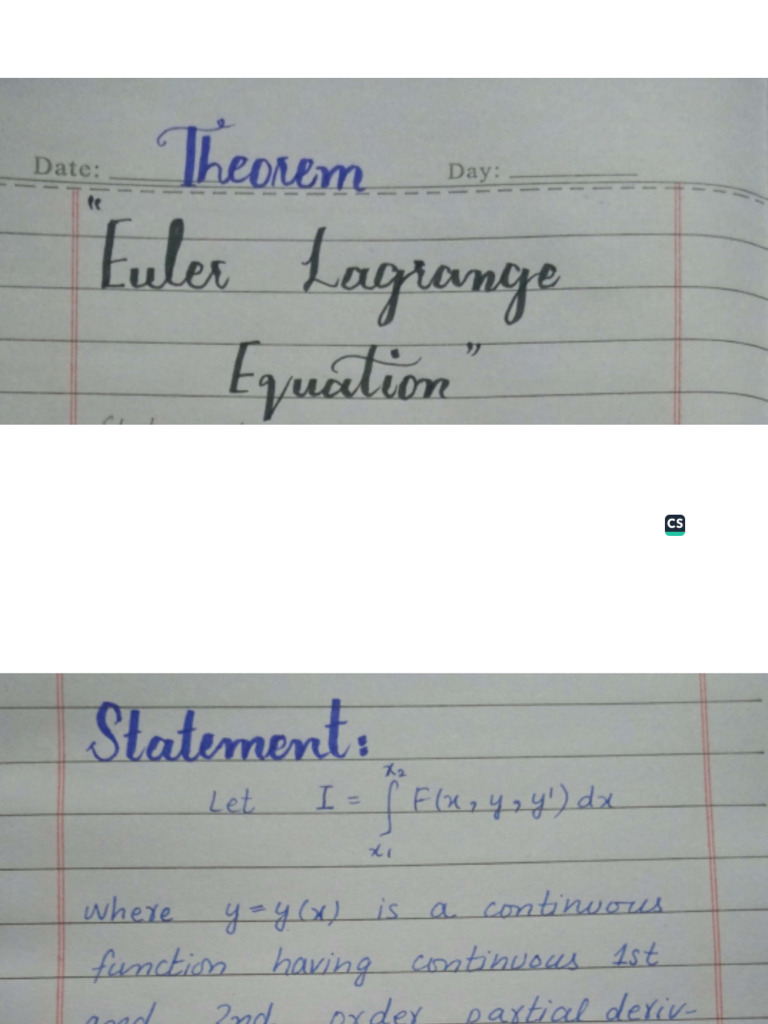 Date: Theorem Day:
"Euler Lagrange
Equation"
CS
Statement:
x₂
Let I = ∫ F(x, y, y') dx
x₁
where y = y(x) is a continuous
function having continuous 1st
and 2nd order partial deriv-